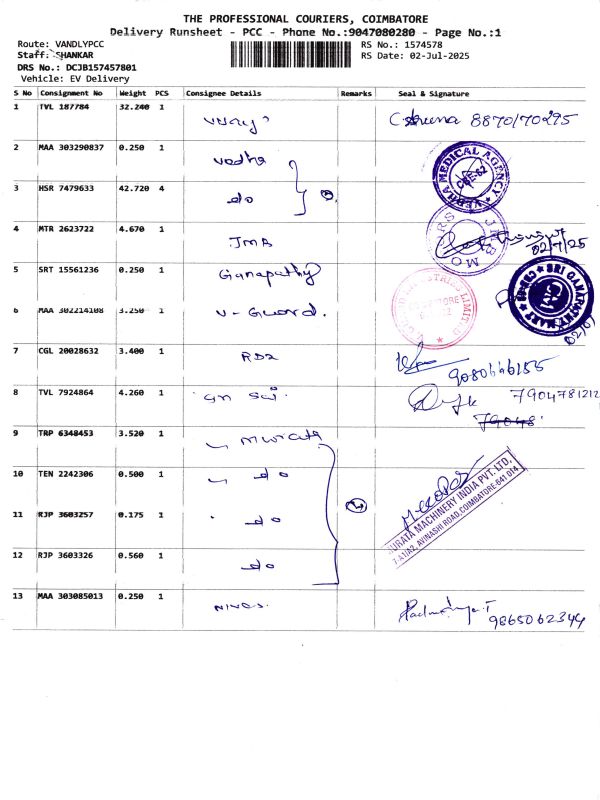 THE PROFESSIONAL COURIERS, COIMBATORE
Delivery Runsheet - PCC - Phone No.:9047080280 - Page No.:1
Route: VANDLYPCC
Staff: SHANKAR
DRS No.: DCJB157457801
Vehicle: EV Delivery
RS No.: 1574578
RS Date: 02-Jul-2025
S No Consignment No Weight PCS Consignee Details Remarks Seal & Signature
1 TVL 187784 32.240 1 8870170295
2 MAA 303290837 0.250 1 vedha MEDICAL AGENCY CBE-62
3 HSR 7479633 42.720 4 do
4 MTR 2623722 4.670 1 JMB JMB MOTORS 02/7/25
5 SRT 15561236 0.250 1 Ganapathy SRI GANAPATHY MART
6 MAA 302214108 3.250 1 V-Guard.
7 CGL 20028632 3.400 1 RD2 9080646155
8 TVL 7924864 4.260 1 Sri Sai. 7904781212
79048
9 TRP 6348453 3.520 1 Murata
10 TEN 2242306 0.500 1 do
11 RJP 3603257 0.175 1 do MURATA MACHINERY INDIA PVT. LTD,
7-A1/A2, AVINASHI ROAD, COIMBATORE-641 014
12 RJP 3603326 0.560 1 do
13 MAA 303085013 0.250 1 9865062344